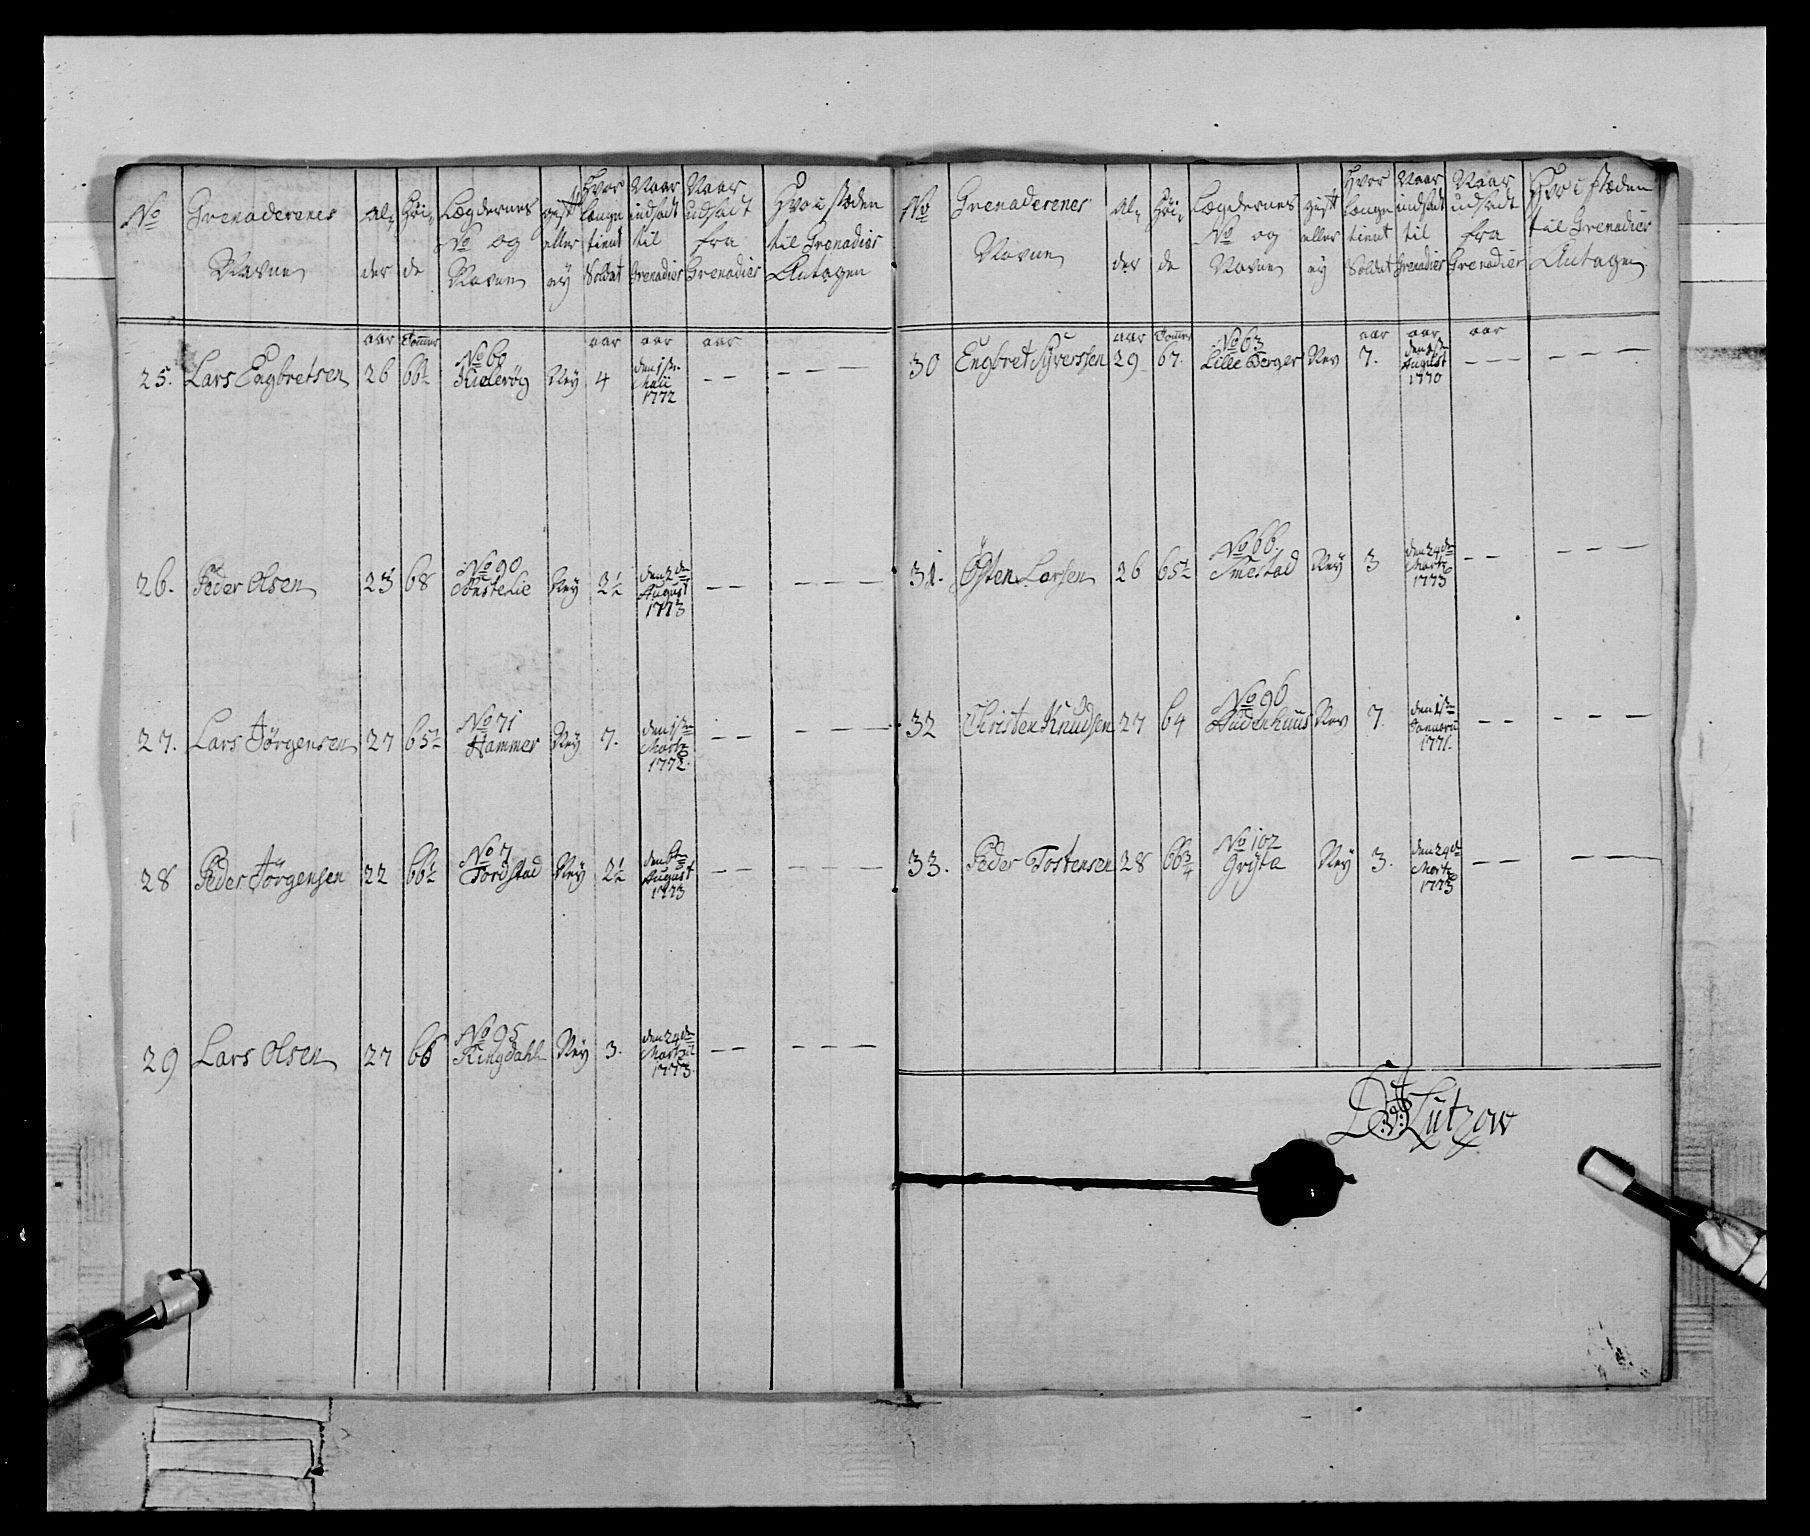 No Grenaderenes Navne Al- der Höi- de Lægdernes No og Navne gift eller ey Hvor længe tient Soldat Naar indsadt til Grenadier Naar udsadt fra Grenadier Hvo i stæden til Grenadier Antagen
aar Tommer aar aar aar
25. Lars Engbretsen 26 66½ No 60 Ney 4 den 1ste Maii 1772 — — — — —
26. Peder Olsen 23 68 No 90 Tonsterlie Ney 3½ den 2de August 1773 — — — — —
27. Lars Jörgensen 27 65½ No 71 Hammer Ney 7. den 1ste Marty 1772. — — — — —
28 Peder Jörgensen 22 66½ No 7 Tordstad Ney 2½ den 6te August 1773 — — — — —
29 Lars Olsen 27 66 No 95 Ringdahl Ney 3. den 24de Martii 1773. — — — — —
No Grenaderenes Navne Al- der Höi- de Lægdernes No og Navne gift eller ey Hvor længe tient Soldat Naar indsadt til Grenadier Naar udsadt fra Grenadier Hvo i stæden til Grenadier Antagen
aar Tommer aar aar aar
30 Engbret Syversen 29 67. No 63 Lille Berger Ney 7. den 1ste August 1770 — — — — — —
31. Östen Larsen 26 65½ No 66. Smestad Ney 3 den 24de Marty 1773 — — — — —
32 Christen Knudsen 27 64 No 96 Audenhuus Ney 7. den 1ste Januarii 1771. — — — — —
33. Peder Tostensen 28 66¾ No 102 Gryte Ney 3. den 24de Marty 1773 — — — —
Lützow